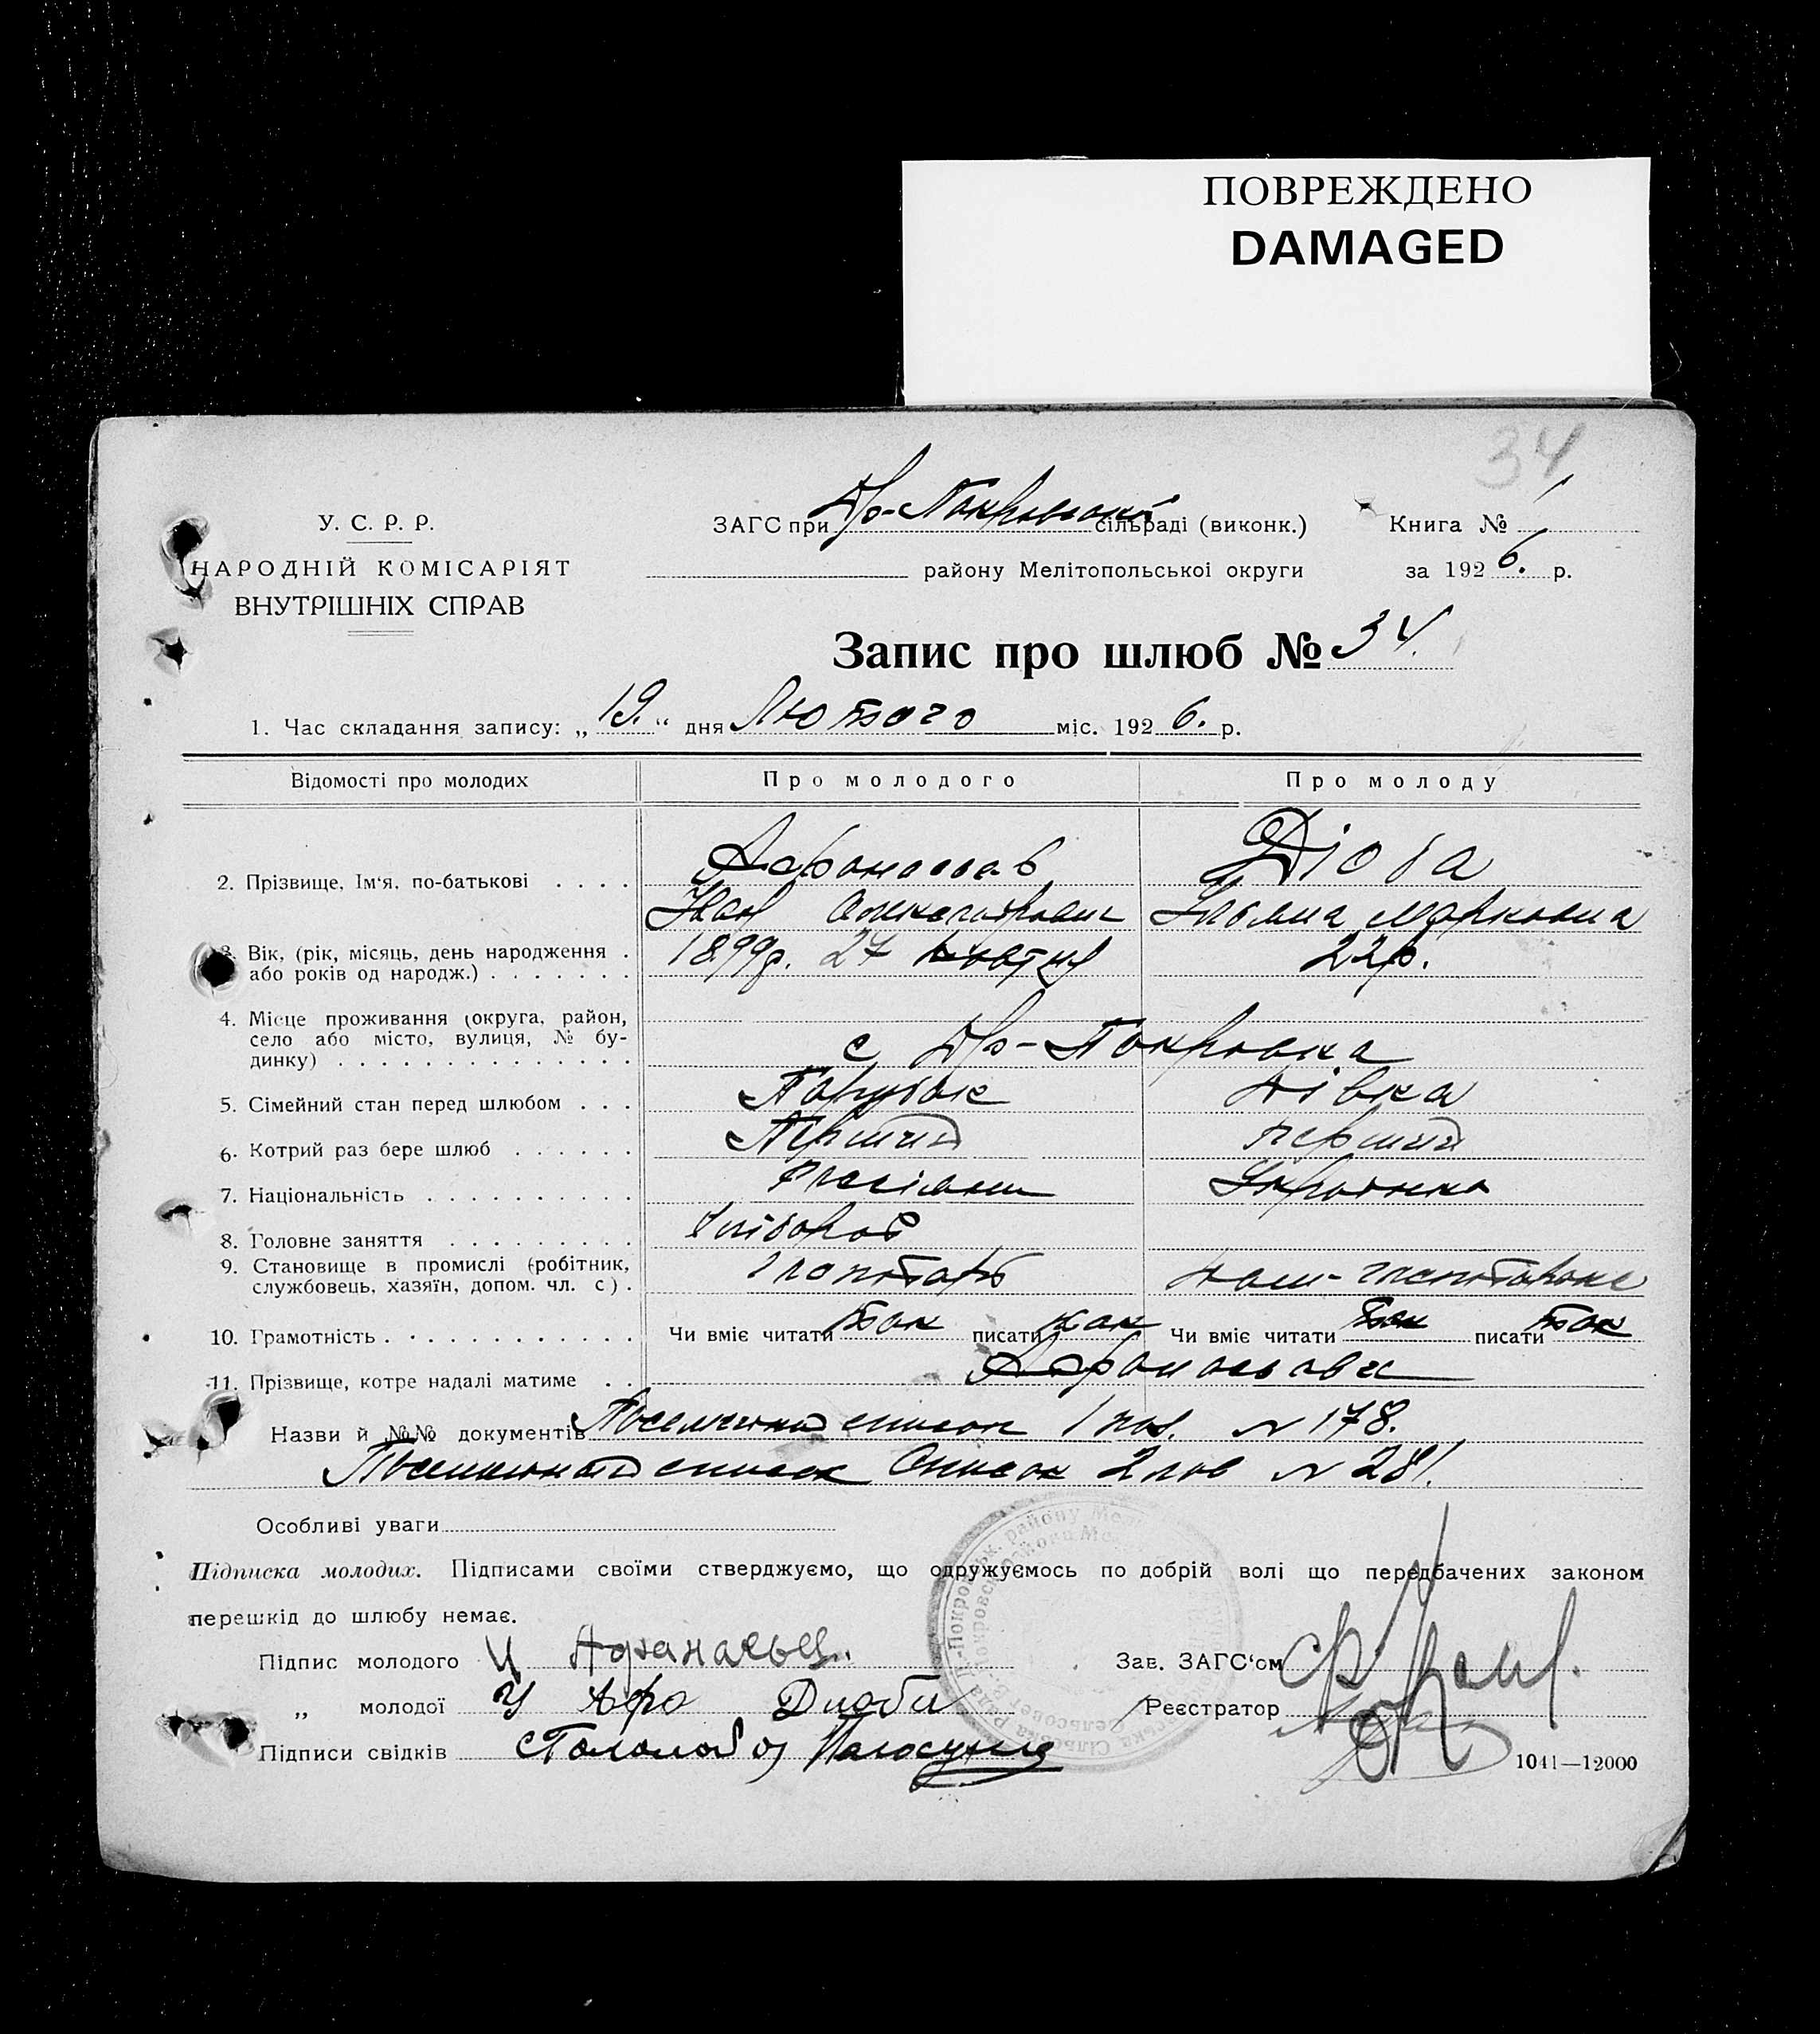 ПОВРЕЖДЕНО
DAMAGED
34
У. С. Р. Р.
НАРОДНІЙ КОМІСАРІЯТ
ВНУТРІШНІХ СПРАВ
ЗАГС при Др-Покровській сільраді (виконк.)
Книга № 1
району Мелітопольської округи
за 1926. р.
Запис про шлюб № 34.
1. Час складання запису: „19.“ дня Лютого міс. 1926. р.
Відомості про молодих
Про молодого
Про молоду
2. Прізвище, Ім‘я, по-батькові
Афонасьев
Діоба
Іван
Ульяна Марковна
3. Вік, (рік, місяць, день народження
або років од народж.)
1899р. 27 жовтня
22р.
4. Місце проживання (округа, район,
село або місто, вулиця, № бу-
динку)
с Др-Покровка
5. Сімейний стан перед шлюбом
Парубок
Дівка
6. Котрий раз бере шлюб
Перший
перший
7. Національність
Українка
8. Головне заняття
Хлібороб
9. Становище в промислі (робітник,
службовець, хазяїн, допом. чл. с).
10. Грамотність
Чи вміє читати так писати так
Чи вміє читати так писати так
11. Прізвище, котре надалі матиме
Назви й №№ документів Посемейний список 1 пол. № 178.
Посемейний список Список 2 пол № 281.
Особливі уваги
Підписка молодих. Підписами своїми стверджуємо, що одружуємось по добрій волі що передбачених законом
перешкід до шлюбу немає.
Підпис молодого
„ молодої
Підписи свідків
Зав. ЗАГС‘ом
Реєстратор
1041—12000